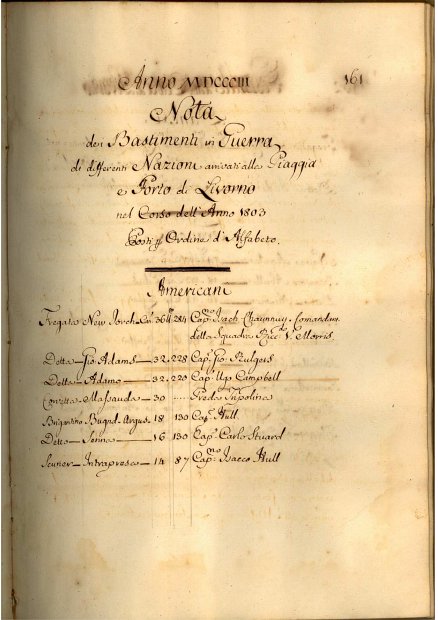 Anno MDCCCIII 161
Nota
dei Bastimenti in Guerra
di differenti Nazioni arrivati alla Piaggia
e Porto di Livorno
nel Corso dell'Anno 1803
Posti Ordine d'Alfabeto.
Americani
Fregata New Jorch 36 284 Cap.no Isach Chaunnuy Comandan.
della Squadra V. Morris
Detta Gio Adams 32 228 Cap. Gio: Rulgers
Detta Adamo 32 223 Cap. Ugo Campbell
Corvetta Massauda 30 .... Preda Tripolina
Brigantino Bugnd. Argus 18 130 Cap. Hull
Detto 16 130 Cap. Carlo Stuard
Scuner Intrapresco 14 87 Cap.no Isacco Hull